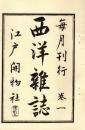 毎月刊行 卷一
西洋雜誌
江戸開物社